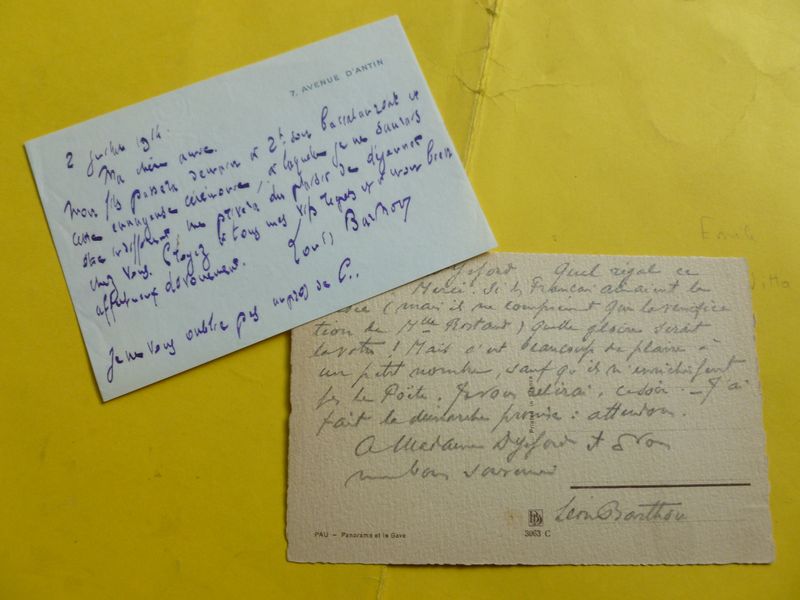 7, AVENUE D'ANTIN
2 juillet 1914.
Ma chère amie,
Mon fils passera demain à 2h son baccalauréat et
cette ennuyeuse cérémonie, à laquelle je ne saurais
être indifférent me privera du plaisir de déjeuner
chez vous. Croyez à tous mes vifs regrets et à mon bien
affectueux dévouement.
Louis Barthou
Je ne vous oublie pas auprès de C..
Quel régal ce
Merci. Si les Français aimaient la
(mais ils ne comprennent que la versifica
tion de Mme Rostand) quelle gloire serait
la vôtre! Mais c'est beaucoup de plaire à
un petit nombre, sauf qu'ils n'enrichissent
pas le Poëte. Je vous relirai, ce soir. — J'ai
fait la démarche promise: attendons.
A Madame et à vous
mon bon souvenir
Léon Barthou
PAU — Panorama et le Gave
3063 C
Emile